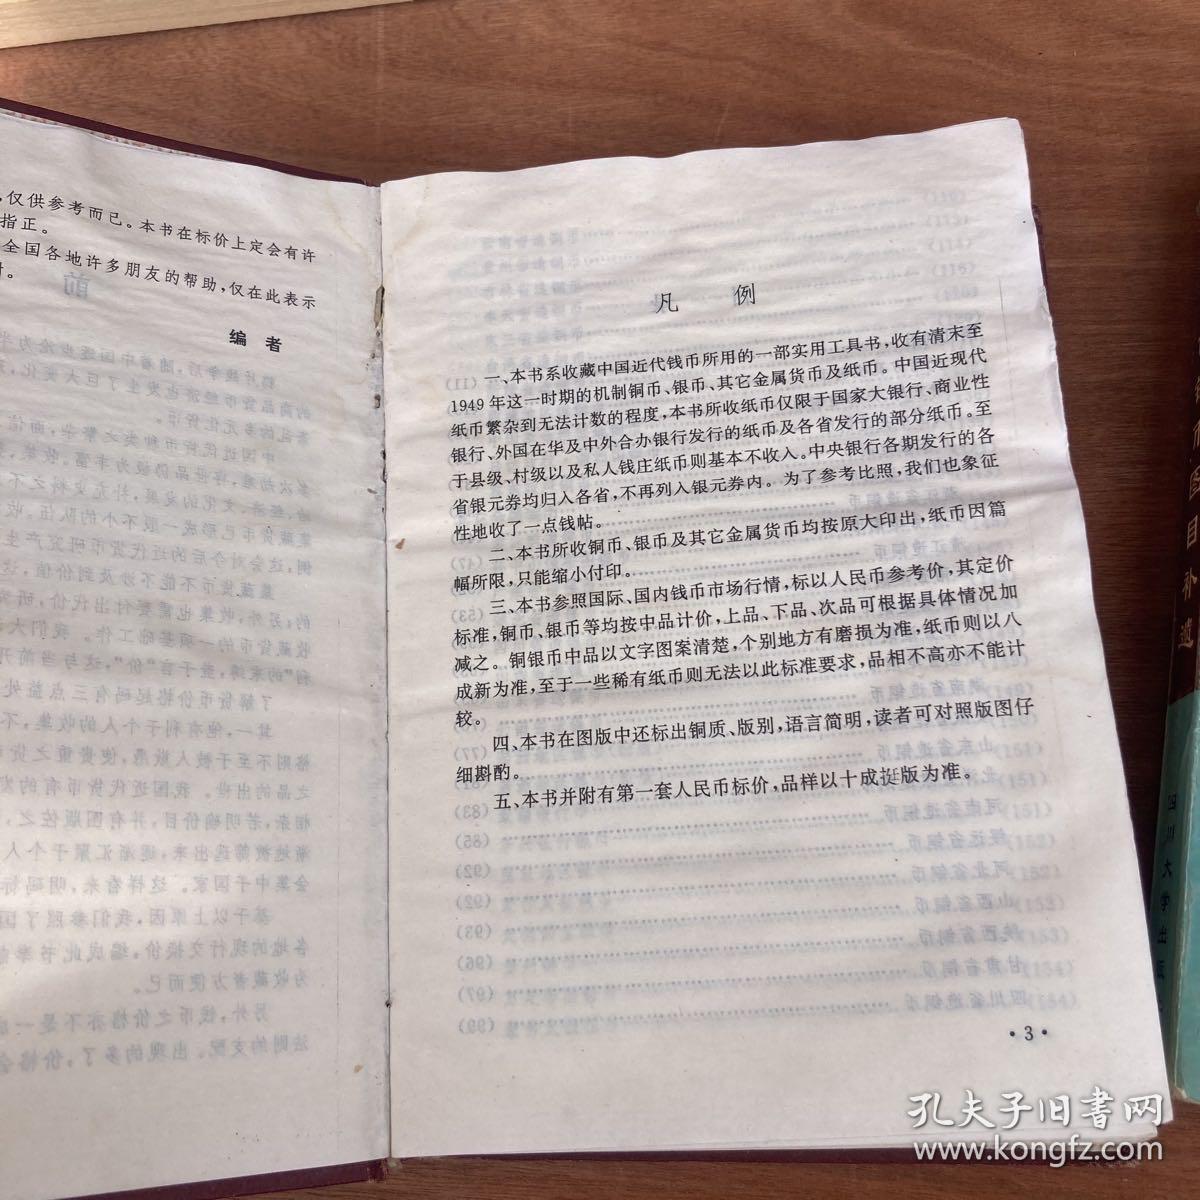 ，仅供参考而已。本书在标价上定会有许
指正。
全国各地许多朋友的帮助，仅在此表示
编者
凡 例
一、本书系收藏中国近代钱币所用的一部实用工具书，收有清末至
1949年这一时期的机制铜币、银币、其它金属货币及纸币。中国近现代
纸币繁杂到无法计数的程度，本书所收纸币仅限于国家大银行、商业性
银行、外国在华及中外合办银行发行的纸币及各省发行的部分纸币。至
于县级、村级以及私人钱庄纸币则基本不收入。中央银行各期发行的各
省银元券均归入各省，不再列入银元券内。为了参考比照，我们也象征
性地收了一点钱帖。
二、本书所收铜币、银币及其它金属货币均按原大印出，纸币因篇
幅所限，只能缩小付印。
三、本书参照国际、国内钱币市场行情，标以人民币参考价，其定价
标准，铜币、银币等均按中品计价，上品、下品、次品可根据具体情况加
减之。铜银币中品以文字图案清楚，个别地方有磨损为准，纸币则以八
成新为准，至于一些稀有纸币则无法以此标准要求，品相不高亦不能计
较。
四、本书在图版中还标出铜质、版别，语言简明，读者可对照版图仔
细斟酌。
五、本书并附有第一套人民币标价，品样以十成挺版为准。
·3·
目补遗
四川大学出
孔夫子旧书网
www.kongfz.com